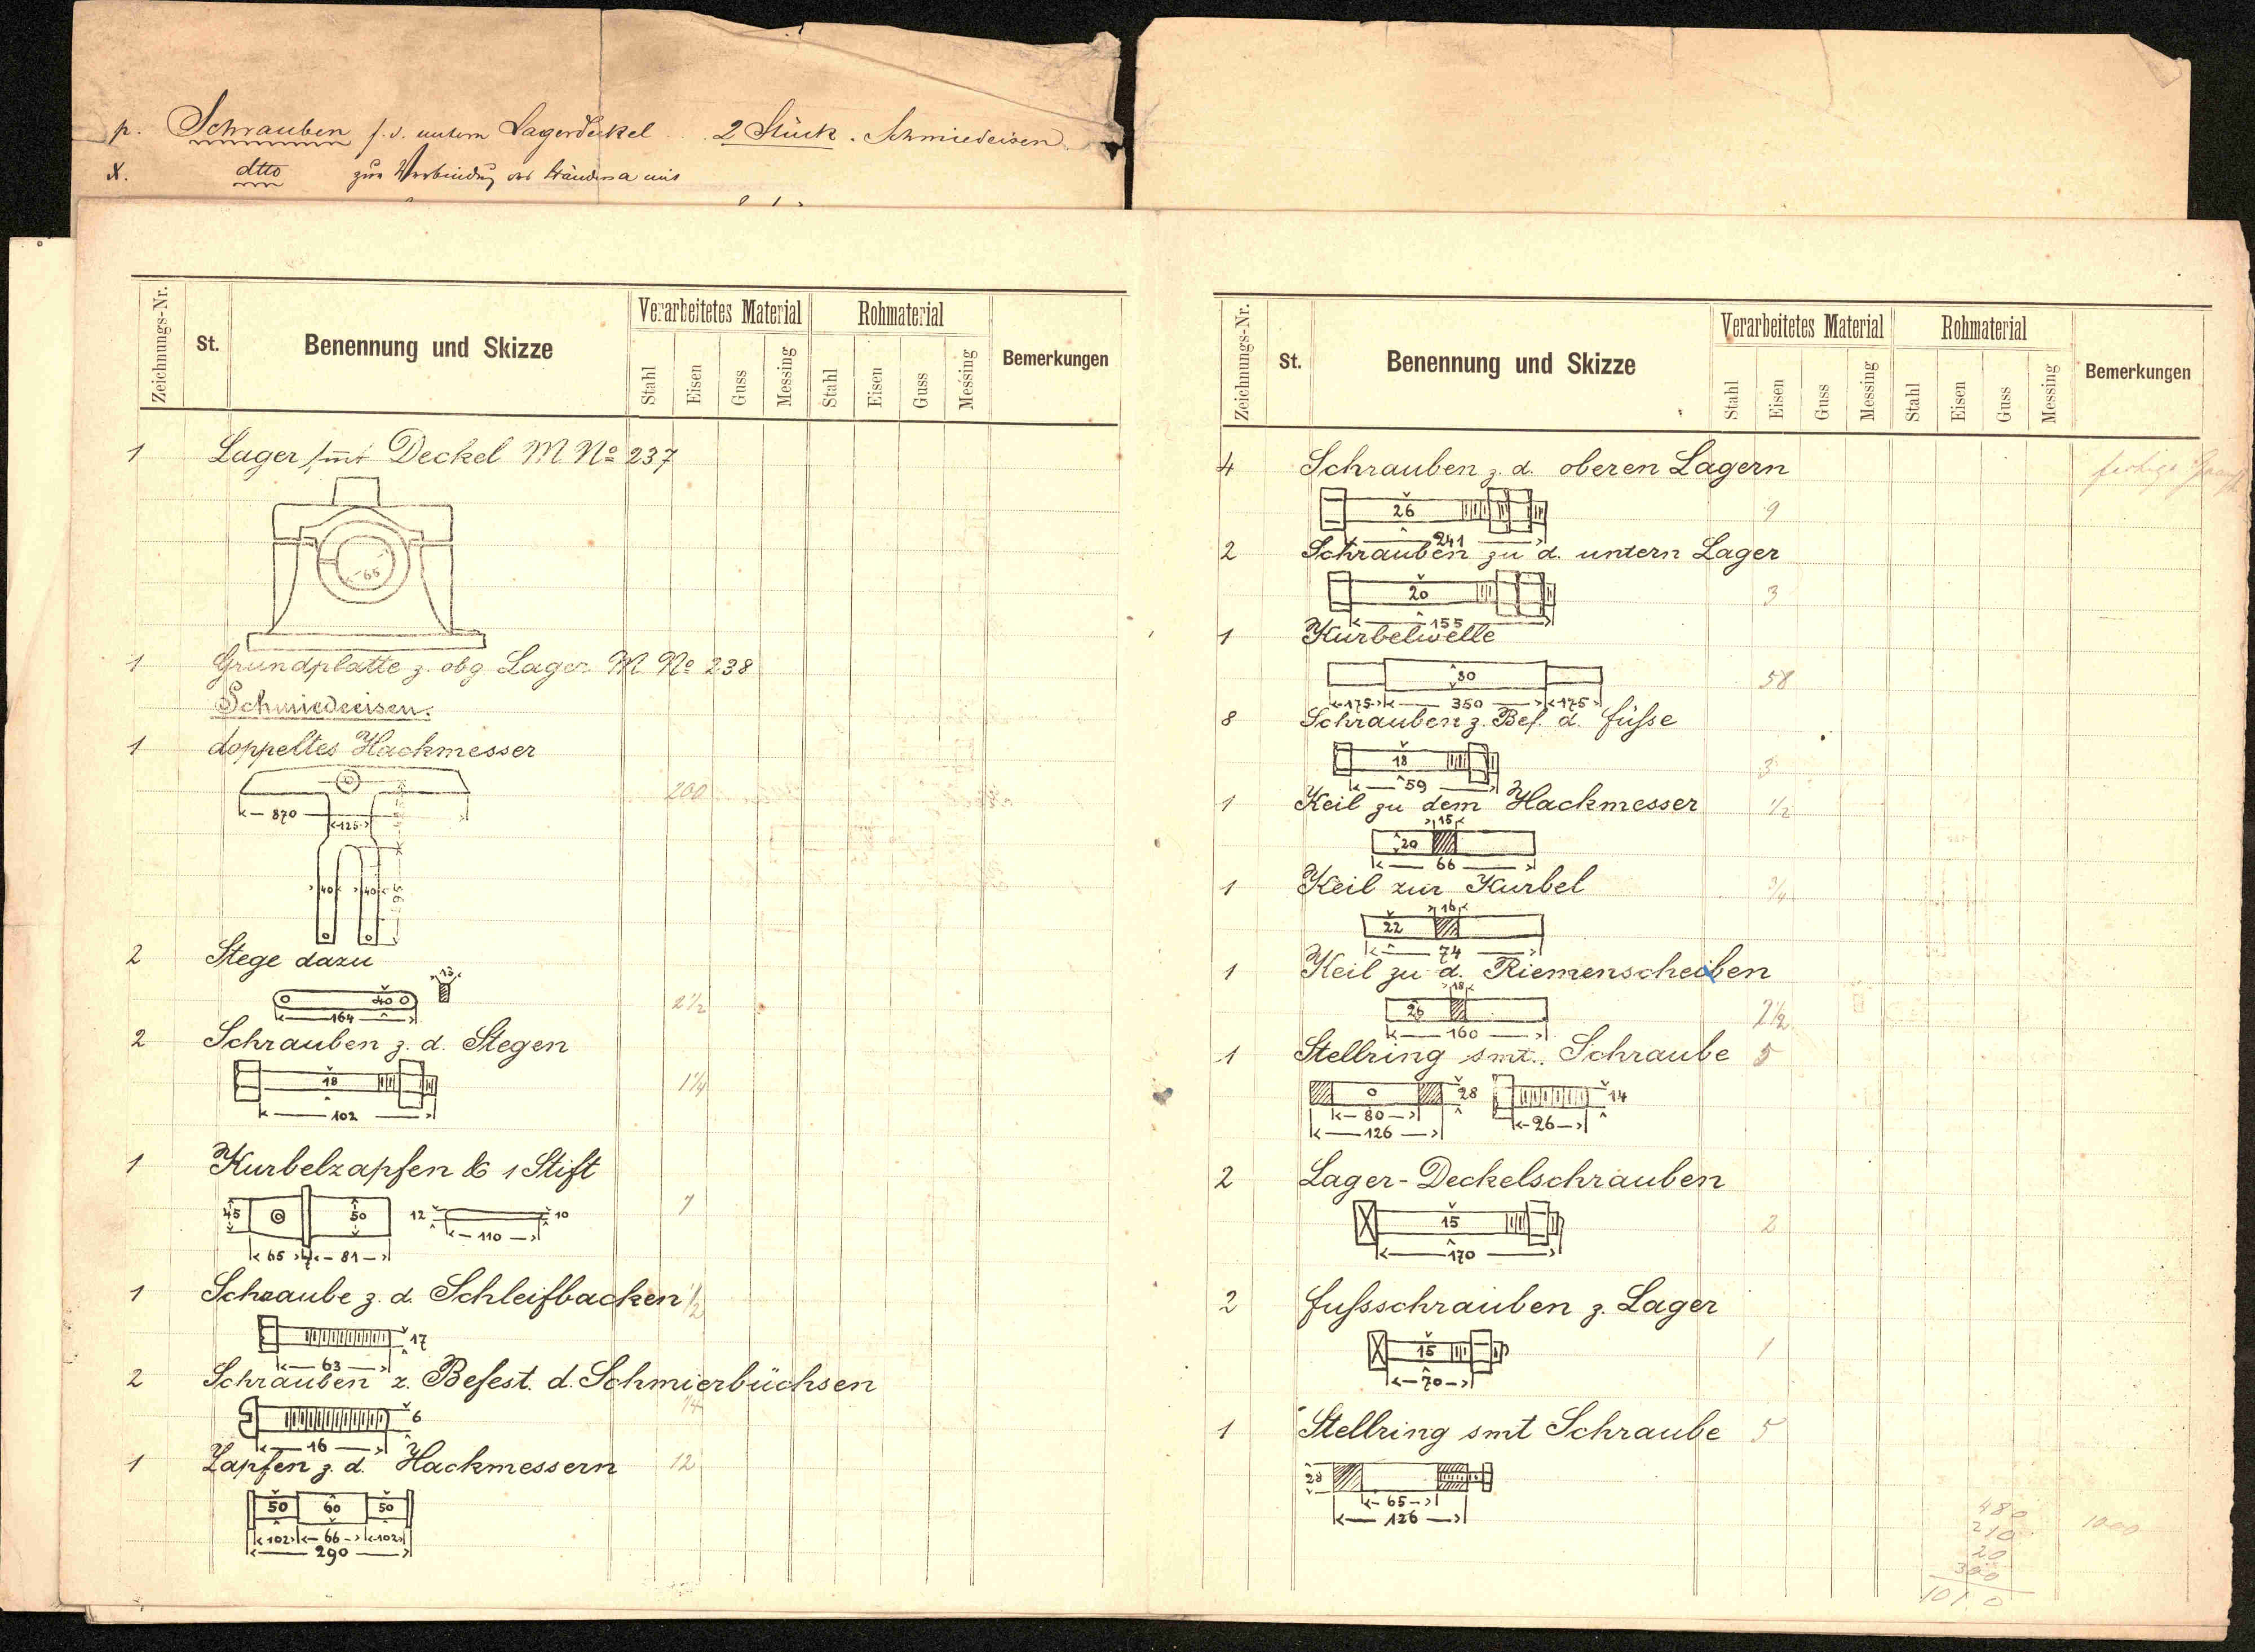 p. Schrauben f. d. untern Lagerdeckel .. 2 Stück . Schmiedeisen
X. dtto zur Verbindung des Ständers a mit
Zeichnungs-Nr. St. Benennung und Skizze Verarbeitetes Material Rohmaterial Bemerkungen
Stahl Eisen Guss Messing Stahl Eisen Guss Messing
1 Lager smt Deckel M No 237
66
1 Grundplatte z. obg Lager M No 238
Schmiedeeisen.
1 doppeltes Hackmesser
200
870
125
40 40 495
2 Stege dazu
13
40 2½
164
2 Schrauben z. d. Stegen
18 1¼
102
1 Kurbelzapfen & 1 Stift
45 50 12 10 7
110
65 7 81
1 Schraube z. d. Schleifbacken ½
17
63
2 Schrauben z. Befest. d. Schmierbüchsen
¼
6
16
1 Zapfen z. d. Hackmessern 12
50 60 50
102 66 102
290
Zeichnungs-Nr. St. Benennung und Skizze Verarbeitetes Material Rohmaterial Bemerkungen
Stahl Eisen Guss Messing Stahl Eisen Guss Messing
4 Schrauben z. d. oberen Lagern fertige
26 9
241
2 Schrauben zu d. untern Lager
20 3
155
1 Kurbelwelle
80 58
175 350 175
8 Schrauben z. Bef. d. füsse
18 3
59
1 Keil zu dem Hackmesser ½
15
20
66
1 Keil zur Kurbel ¾
16
22
74
1 Keil zu d. Riemenscheiben
18
26 2½
160
1 Stellring smt. Schraube 5
28 14
80 26
126
2 Lager-Deckelschrauben
15 2
170
2 fussschrauben z. Lager
15 1
70
1 Stellring smt Schraube 5
28
65
126
480
210 1000
20
300
1010